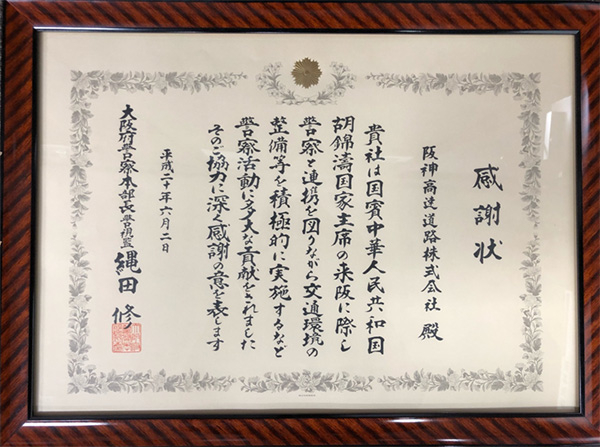 感謝状
阪神高速道路株式会社 殿
貴社は国賓中華人民共和国
胡錦濤国家主席の来阪に際し
警察と連携を図りながら交通環境の
整備等を積極的に実施するなど
警察活動に多大な貢献をされました
そのご協力に深く感謝の意を表します
平成二十年六月二日
大阪府警察本部長警視監 縄田 修